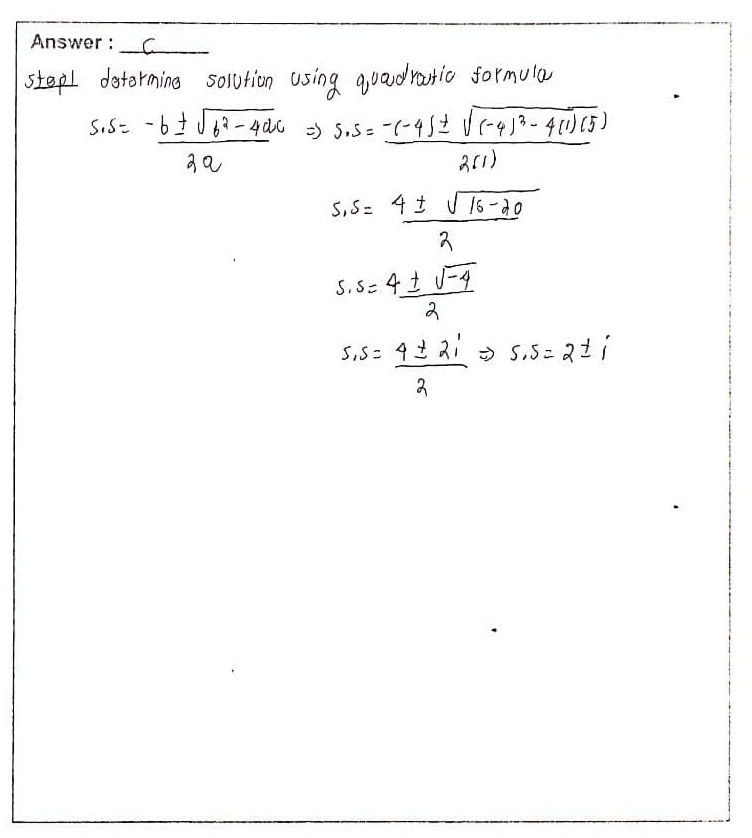 Answer : C
step1 determine solution using quadratic formula
S.S = -b ± √b² - 4ac / 2a ⇒ S.S = -(-4) ± √(-4)² - 4(1)(5) / 2(1)
S.S = 4 ± √16-20 / 2
S.S = 4 ± √-4 / 2
S.S = 4 ± 2i / 2 ⇒ S.S = 2 ± i